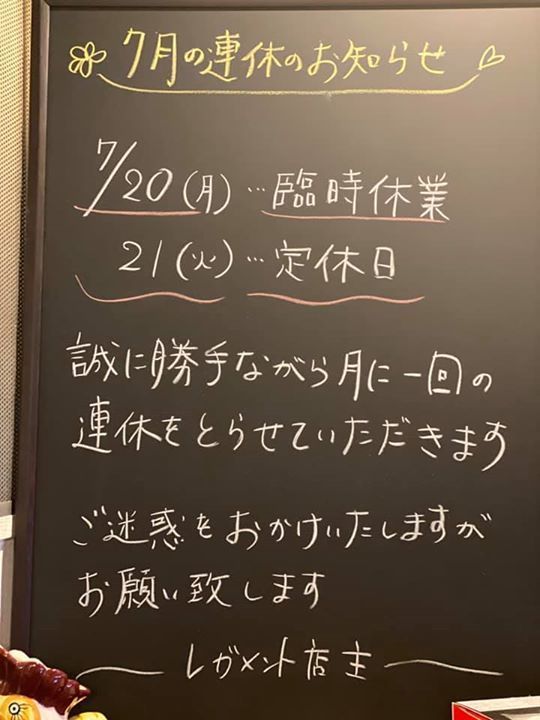 7月の連休のお知らせ
7/20(月)…臨時休業
21(火)…定休日
誠に勝手ながら月に一回の
連休をとらせていただきます
ご迷惑をおかけいたしますが
お願い致します
レガメント店主